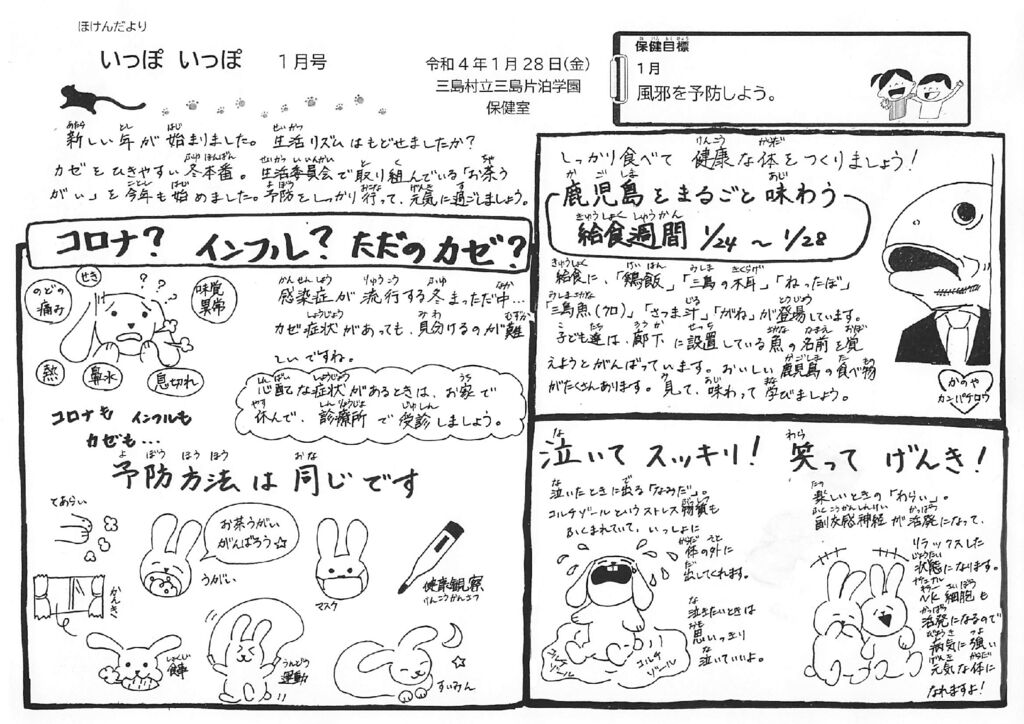 ほけんだより
いっぽ いっぽ 1月号
令和4年1月28日(金)
三島村立三島片泊学園
保健室
保健目標
1月
風邪を予防しよう。
新しい年が始まりました。生活リズムはもどせましたか?
カゼをひきやすい冬本番。生活委員会で取り組んでいる「お茶う
がい」を今年も始めました。予防をしっかり行って、元気に過ごしましょう。
コロナ? インフル? ただのカゼ?
せき
のどの
痛み
味覚
異常
熱
鼻水
息切れ
感染症が流行する冬まっただ中…
カゼの症状があっても、見分けるのが難
しいですね。
心配な症状があるときは、お家で
休んで、診療所で受診しましょう。
コロナも インフルも
カゼも…
予防方法は同じです
てあらい
お茶うがい
がんばろう☆
うがい
マスク
健康観察
けんこうかんさつ
かんき
食事
運動
すいみん
しっかり食べて 健康な体をつくりましょう!
鹿児島をまるごと味わう
給食週間 1/24 ~ 1/28
給食に、「鶏飯」「三島の木耳」「ねったぼ」
「三島魚(クロ)」「さつま汁」「がね」が登場しています。
子ども達は、廊下に設置している魚の名前を覚
えようとがんばっています。おいしい鹿児島の食べ物
がたくさんあります。見て、味わって学びましょう。
かのや
カンパチロウ
泣いてスッキリ! 笑ってげんき!
泣いたときに出る「なみだ」。
コルチゾールというストレス物質も
ふくまれていて、いっしょに
体の外に
出してくれます。
泣きたいときは
思いっきり
泣いていいよ。
コルチ
ゾール
コルチ
ゾール
楽しいときの「わらい」。
副交感神経が活発になって、
リラックスした
状態になります。
NK細胞も
活発になるので
病気に強い
元気な体に
なれますよ!